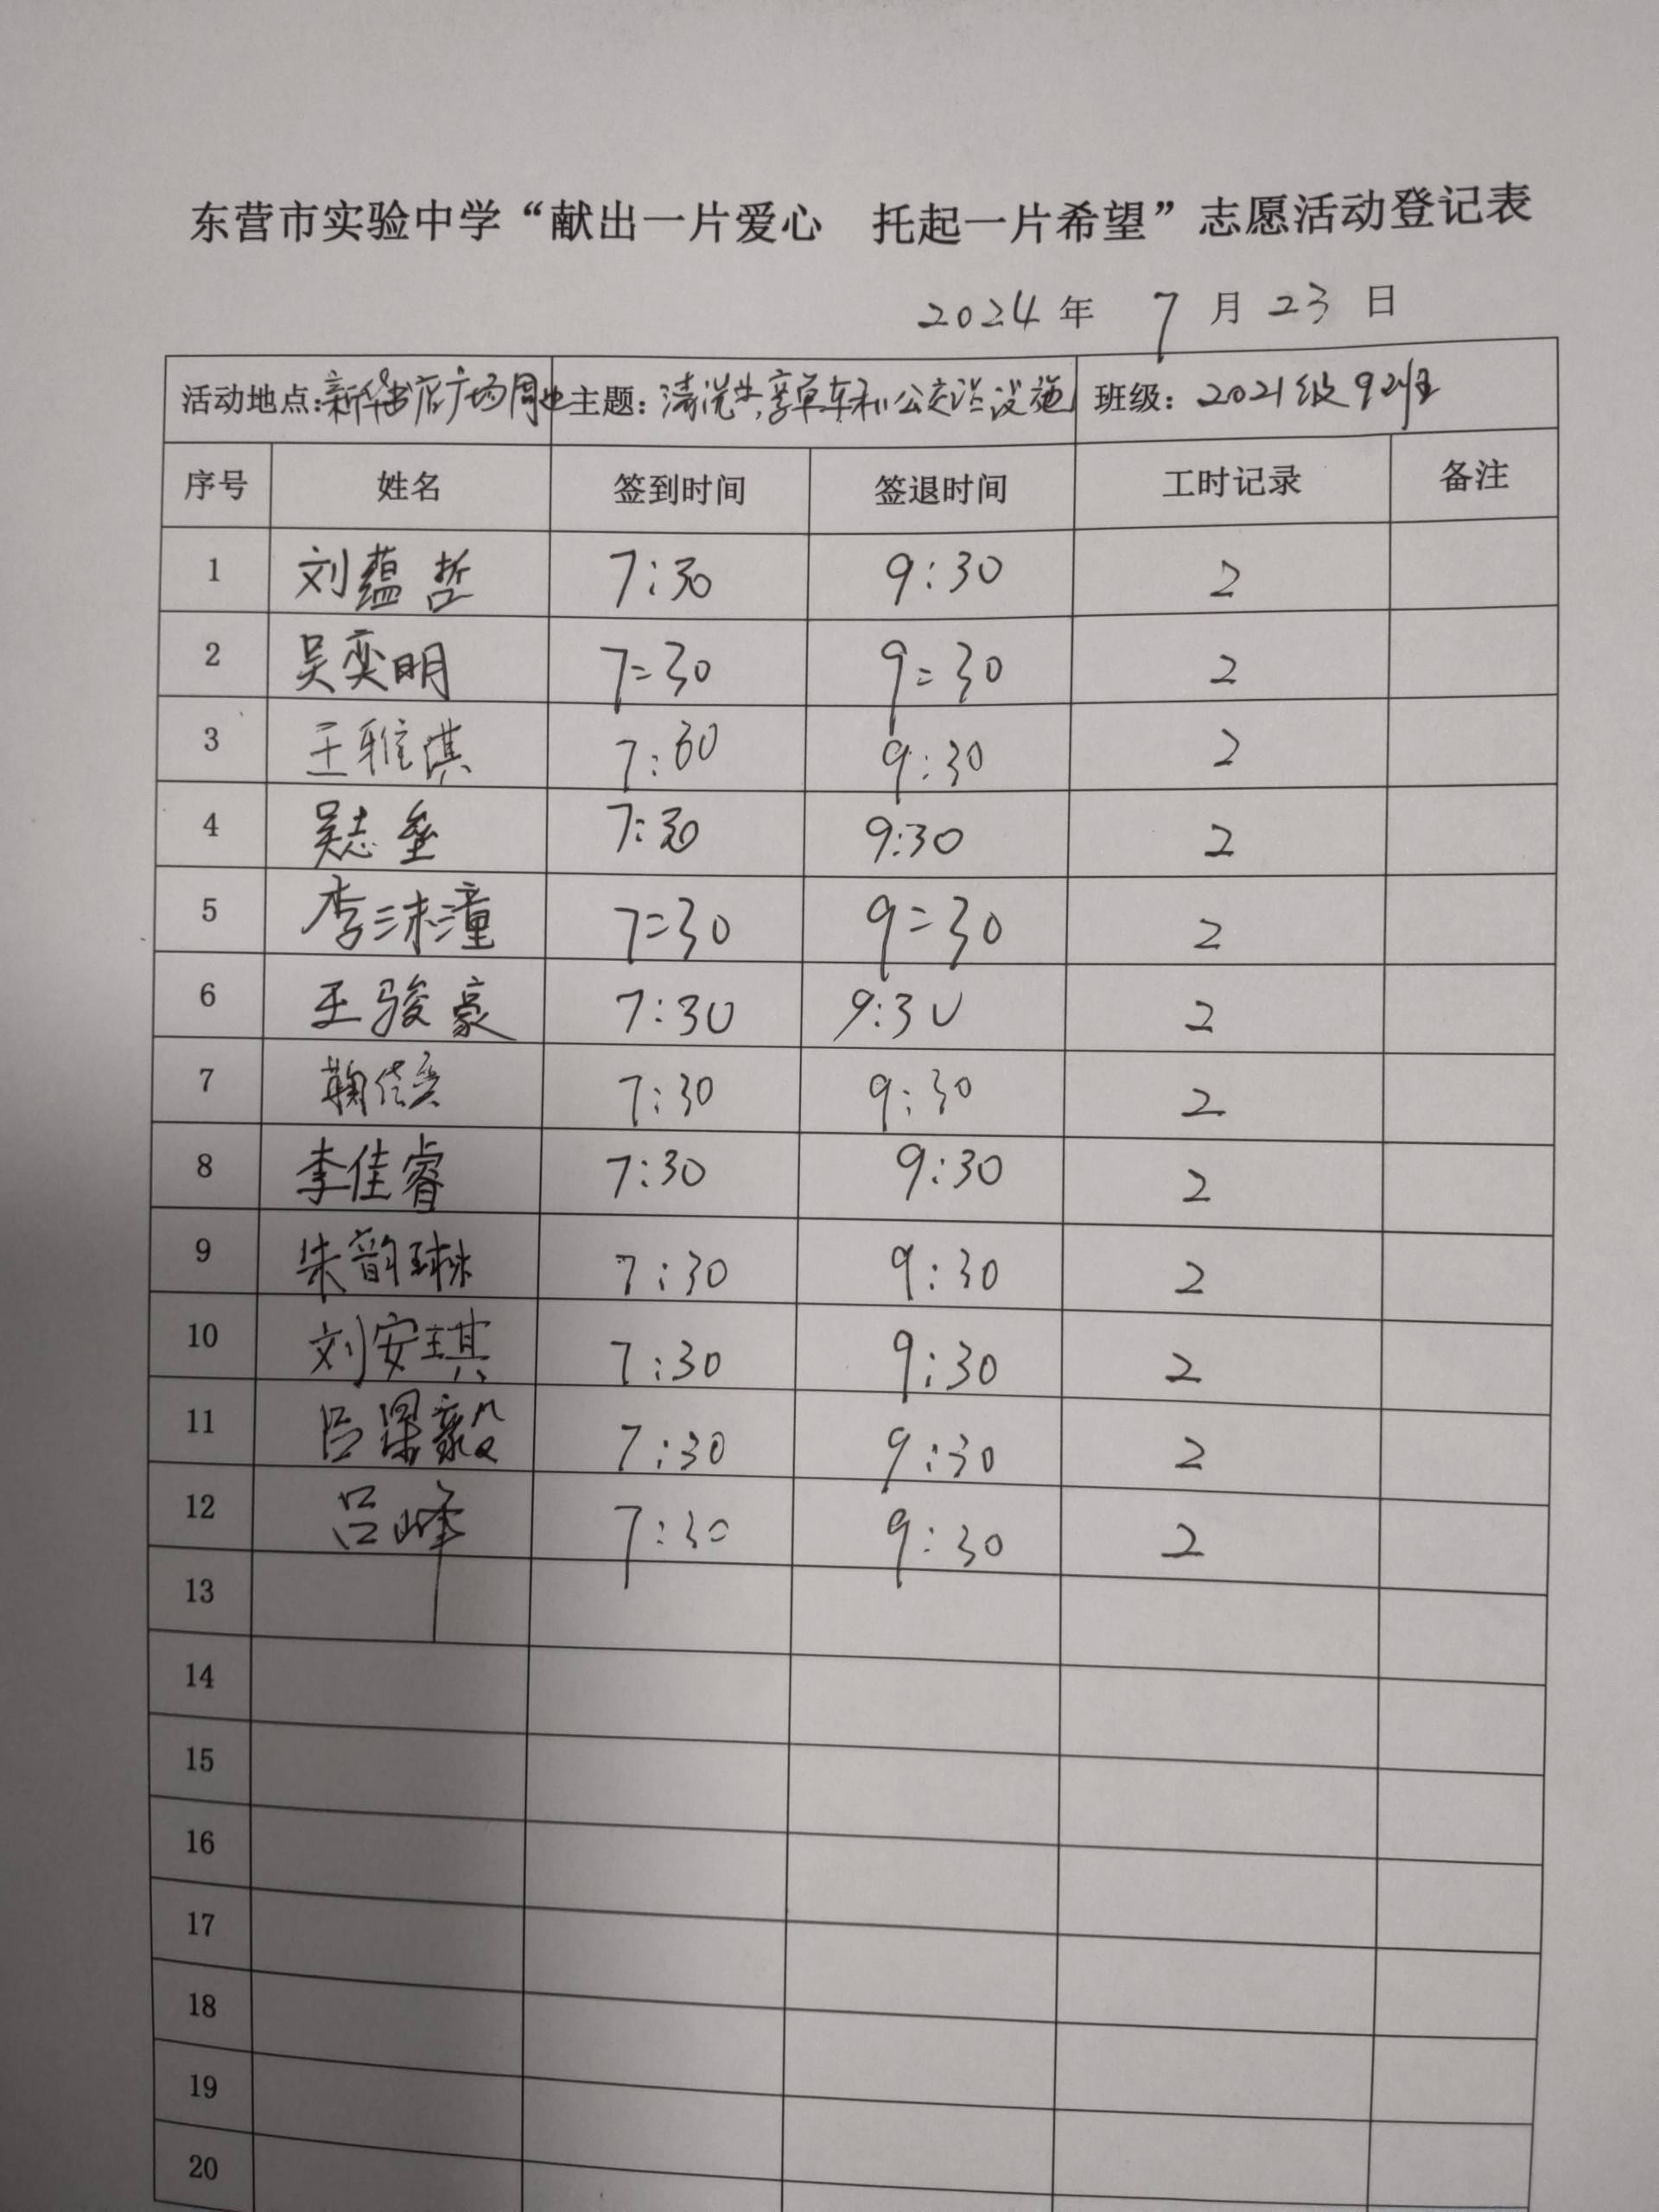 东营市实验中学“献出一片爱心 托起一片希望”志愿活动登记表
2024年 7月23日
活动地点:新华书店广场周边 主题:清洗共享单车和公交站设施 班级:2021级9班
序号 姓名 签到时间 签退时间 工时记录 备注
1 刘蕴哲 7:30 9:30 2
2 吴奕明 7:30 9:30 2
3 王雅淇 7:30 9:30 2
4 吴志 7:30 9:30 2
5 李沫潼 7:30 9:30 2
6 王骏豪 7:30 9:30 2
7 鞠佳 7:30 9:30 2
8 李佳睿 7:30 9:30 2
9 朱韵琳 7:30 9:30 2
10 刘安琪 7:30 9:30 2
11 吕杲毅 7:30 9:30 2
12 吕峰 7:30 9:30 2
13
14
15
16
17
18
19
20